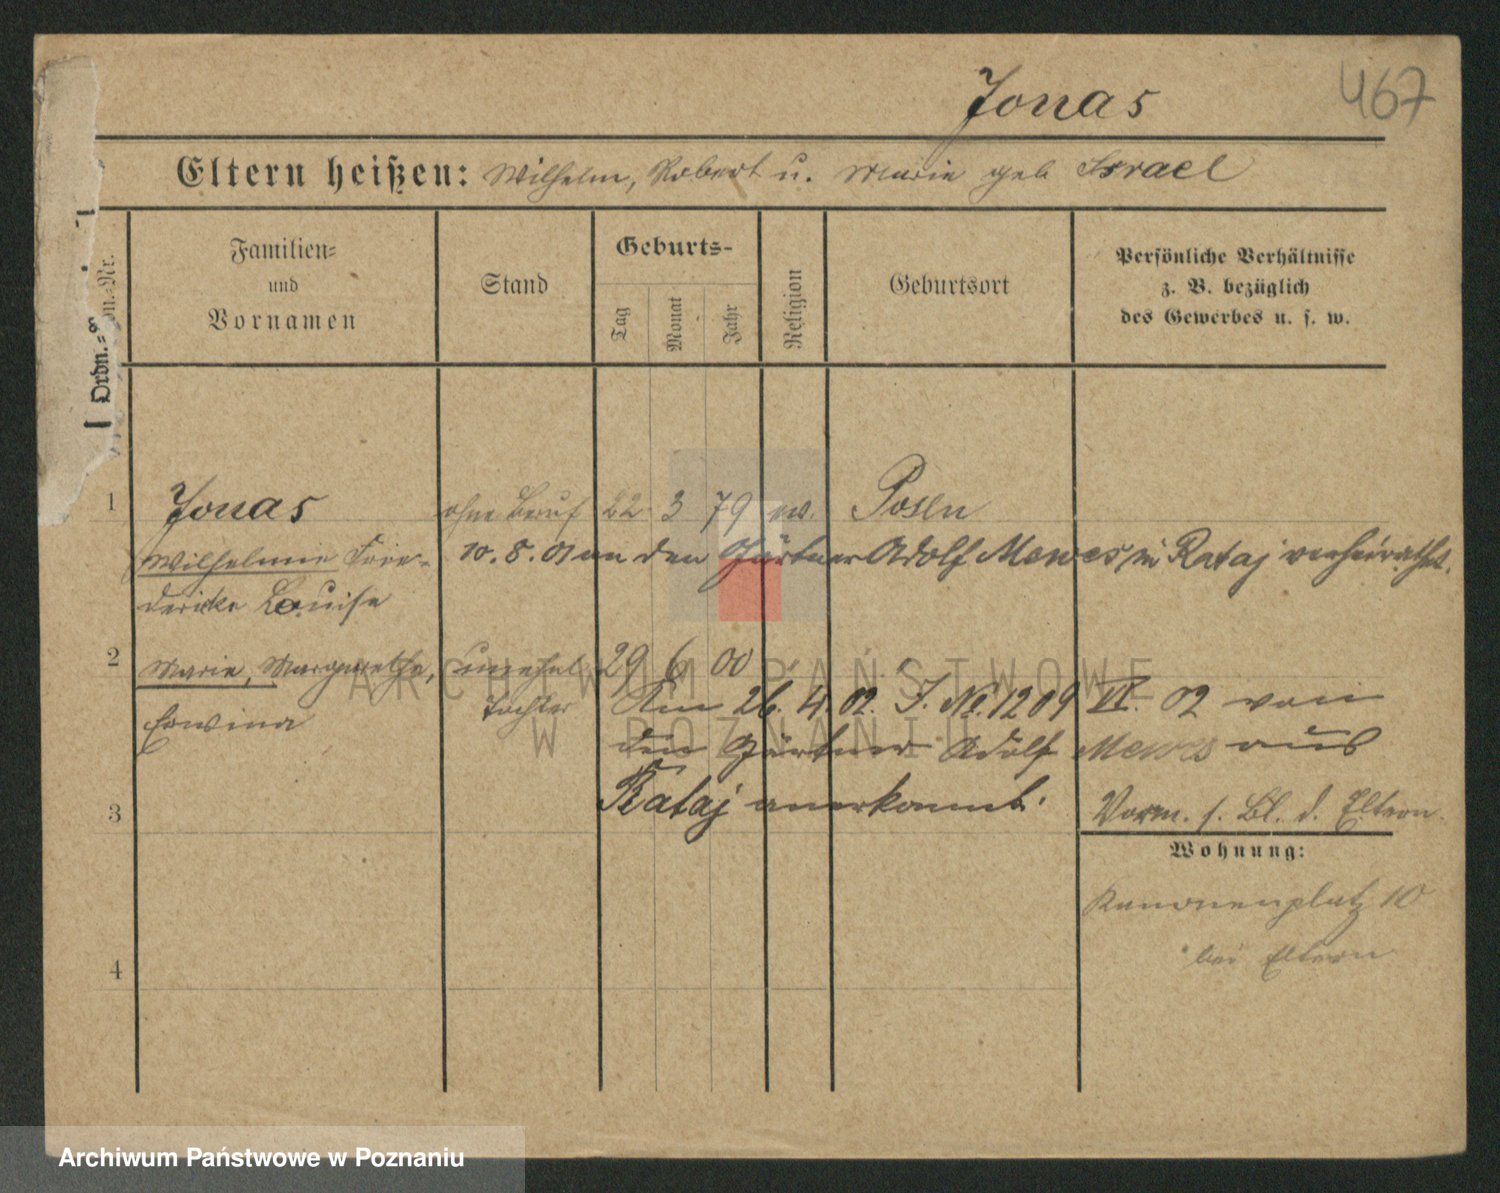 Jonas
467
Eltern heißen: Wilhelm, Robert u. Marie geb Israel
Ordn.-Nr.
Familien-
und
Vornamen
Stand
Geburts-
Tag
Monat
Jahr
Religion
Geburtsort
Persönliche Verhältnisse
z. B. bezüglich
des Gewerbes u. s. w.
1 Jonas ohne Beruf 22 3 79 ev. Posen
Wilhelmine Frie-
dericke Louise
10. 8. 01 an den Gärtner Adolf Mewes in Rataj verheirathet.
2 Marie, Margarethe, unehel 29 6 00
Erwina
Tochter
Am 26. 4. 02. J. No. 1209 VI. 02 von
den Gärtner Adolf Mewes aus
Rataj anerkannt.
3
Vorm. s. Bl. d. Eltern
Wohnung:
Kanonenplatz 10
bei Eltern
4
ARCHIWUM PAŃSTWOWE
W POZNANIU
Archiwum Państwowe w Poznaniu